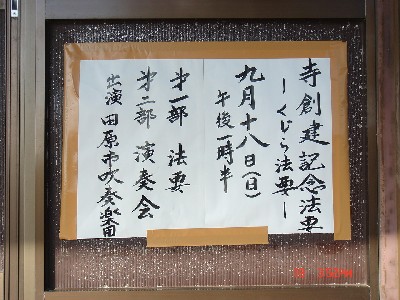 寺創建記念法要
ーくじら法要ー
九月十八日(日)
午後一時半
第一部 法要
第二部 演奏会
出演 田原市吹奏楽団